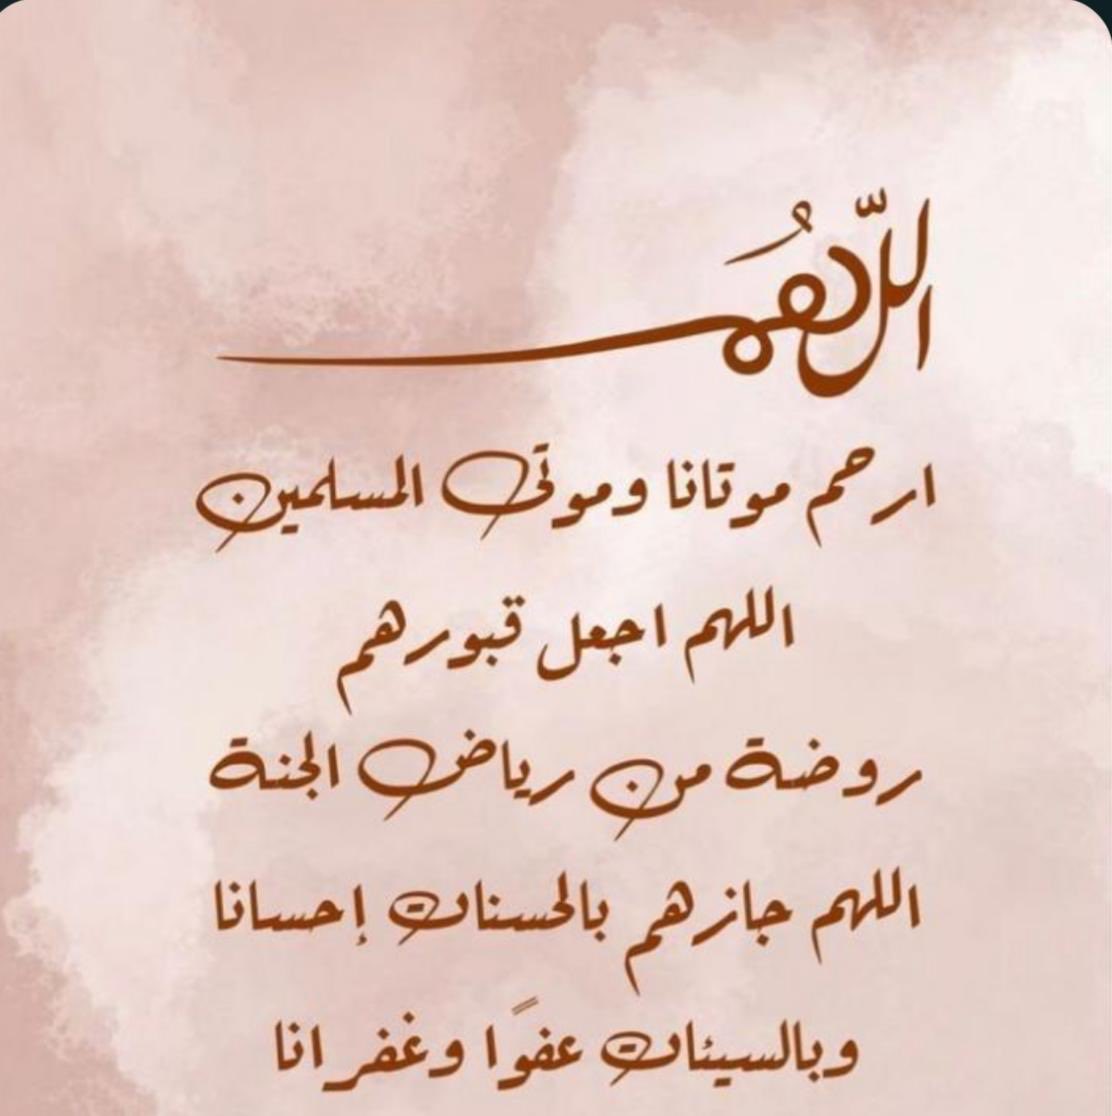 اللّهُم
ارحم موتانا وموتى المسلمين
اللهم اجعل قبورهم
روضة من رياض الجنة
اللهم جازهم بالحسنات إحسانا
وبالسيئات عفوًا وغفرانا